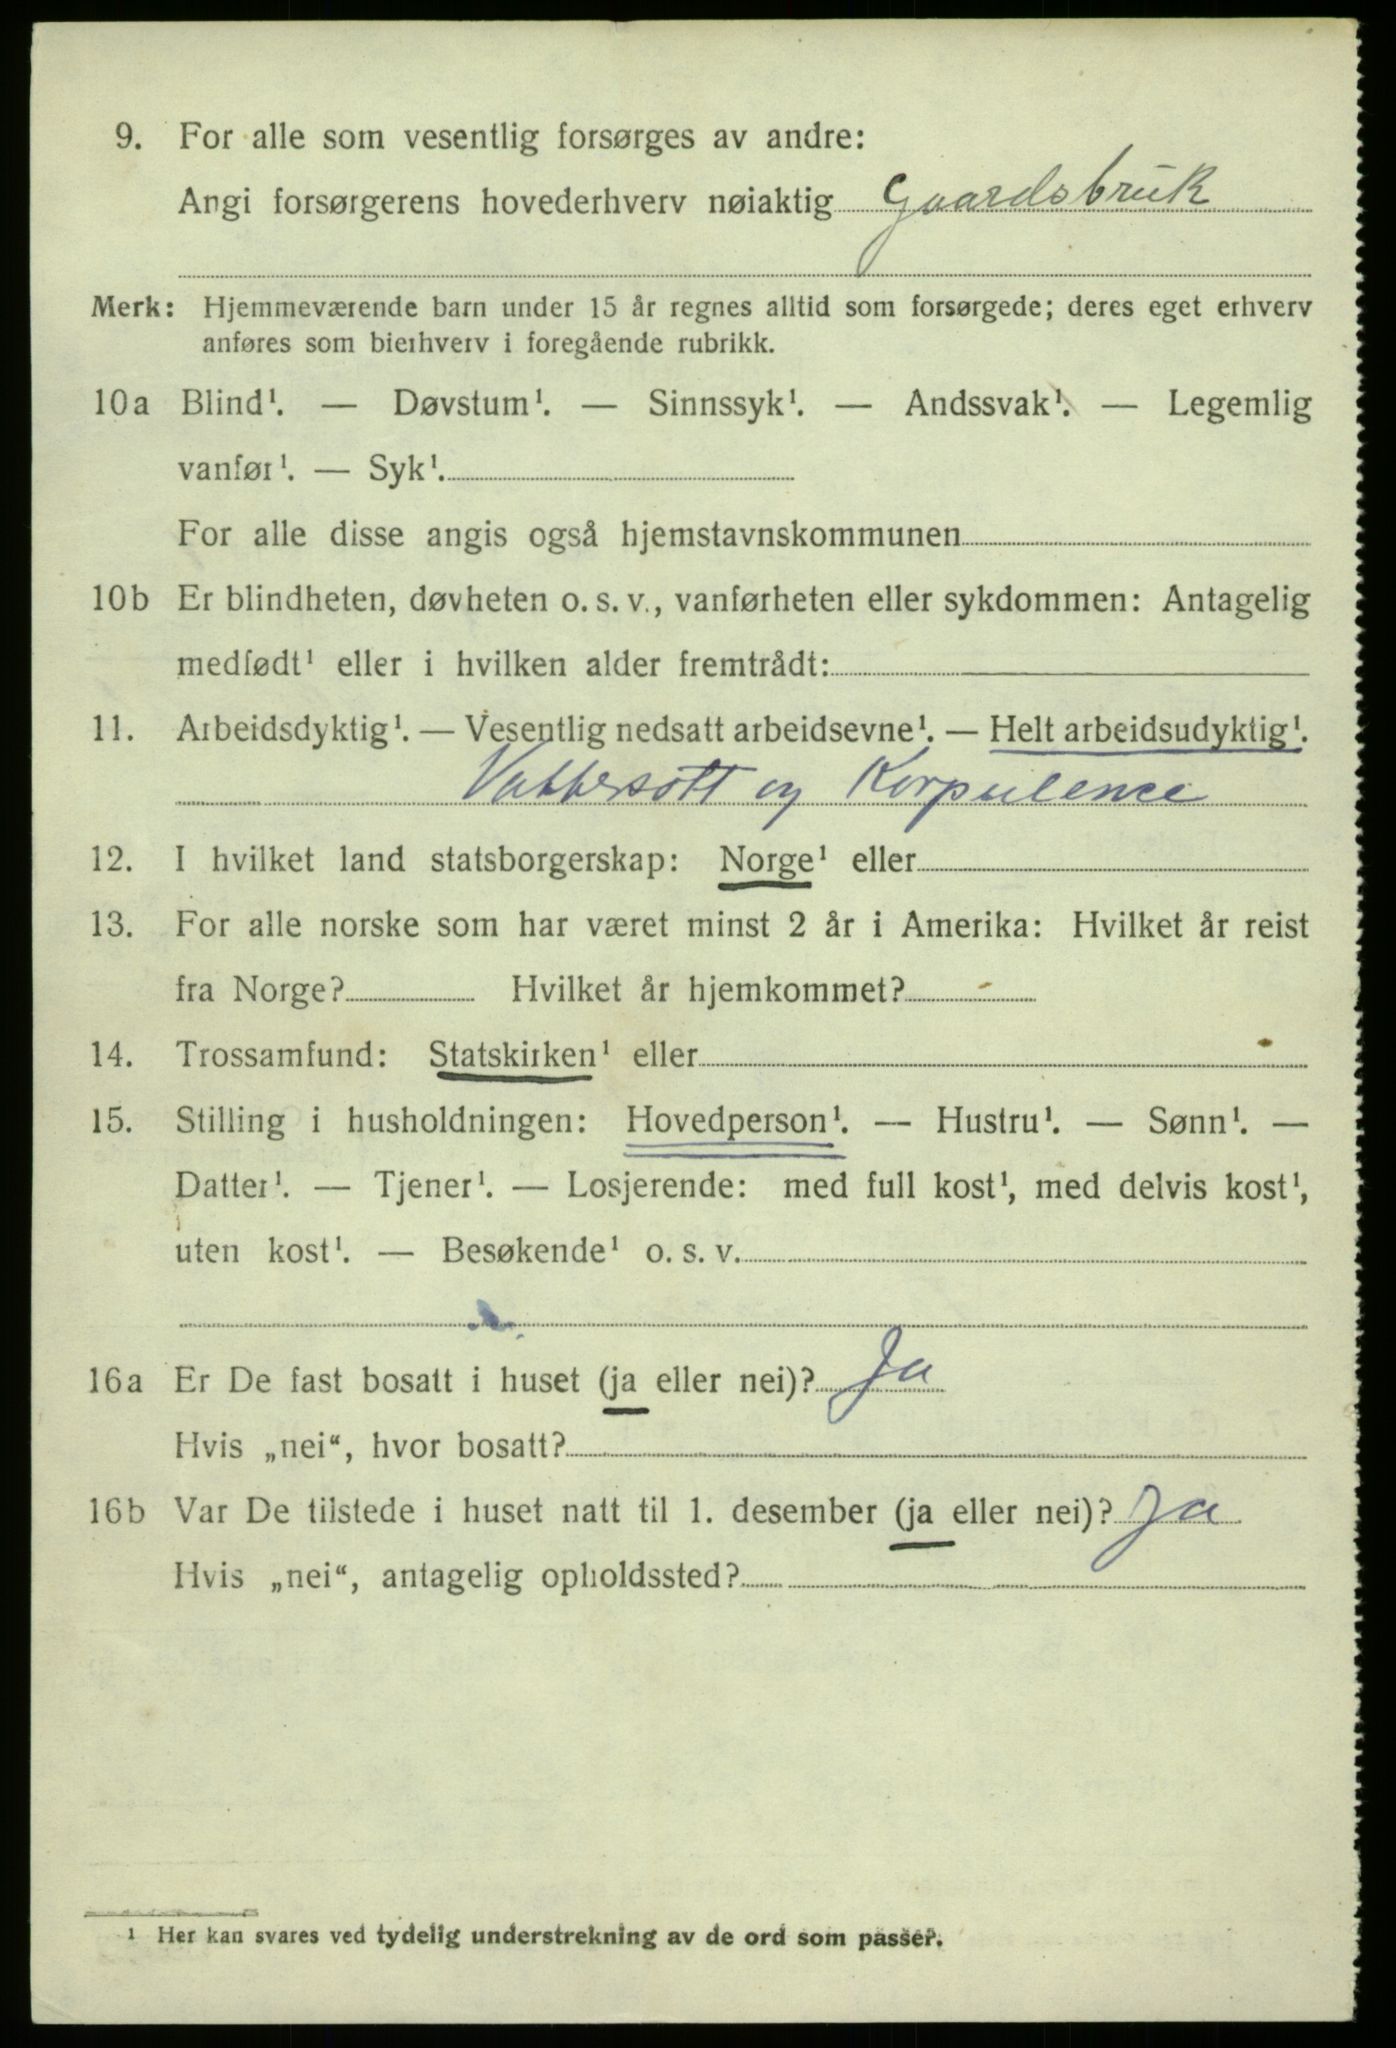 9. For alle som vesentlig forsørges av andre:
Angi forsørgerens hovederhverv nøiaktig Gaardsbruk
Merk: Hjemmeværende barn under 15 år regnes alltid som forsørgede; deres eget erhverv
anføres som bierhverv i foregående rubrikk.
10a Blind¹. — Døvstum¹. — Sinnssyk¹. — Andssvak¹. — Legemlig
vanfør¹. — Syk¹.
For alle disse angis også hjemstavnskommunen
10b Er blindheten, døvheten o. s. v., vanførheten eller sykdommen: Antagelig
medfødt¹ eller i hvilken alder fremtrådt:
11. Arbeidsdyktig¹. — Vesentlig nedsatt arbeidsevne¹. — Helt arbeidsudyktig¹.
Vattersott og Korpulence
12. I hvilket land statsborgerskap: Norge¹ eller
13. For alle norske som har været minst 2 år i Amerika: Hvilket år reist
fra Norge? Hvilket år hjemkommet?
14. Trossamfund: Statskirken¹ eller
15. Stilling i husholdningen: Hovedperson¹. — Hustru¹. — Sønn¹. —
Datter¹. — Tjener¹. — Losjerende: med full kost¹, med delvis kost¹,
uten kost¹. — Besøkende¹ o. s. v.
16a Er De fast bosatt i huset (ja eller nei)? Ja
Hvis „nei“, hvor bosatt?
16b Var De tilstede i huset natt til 1. desember (ja eller nei)? Ja
Hvis „nei“, antagelig opholdssted?
¹ Her kan svares ved tydelig understrekning av de ord som passer.